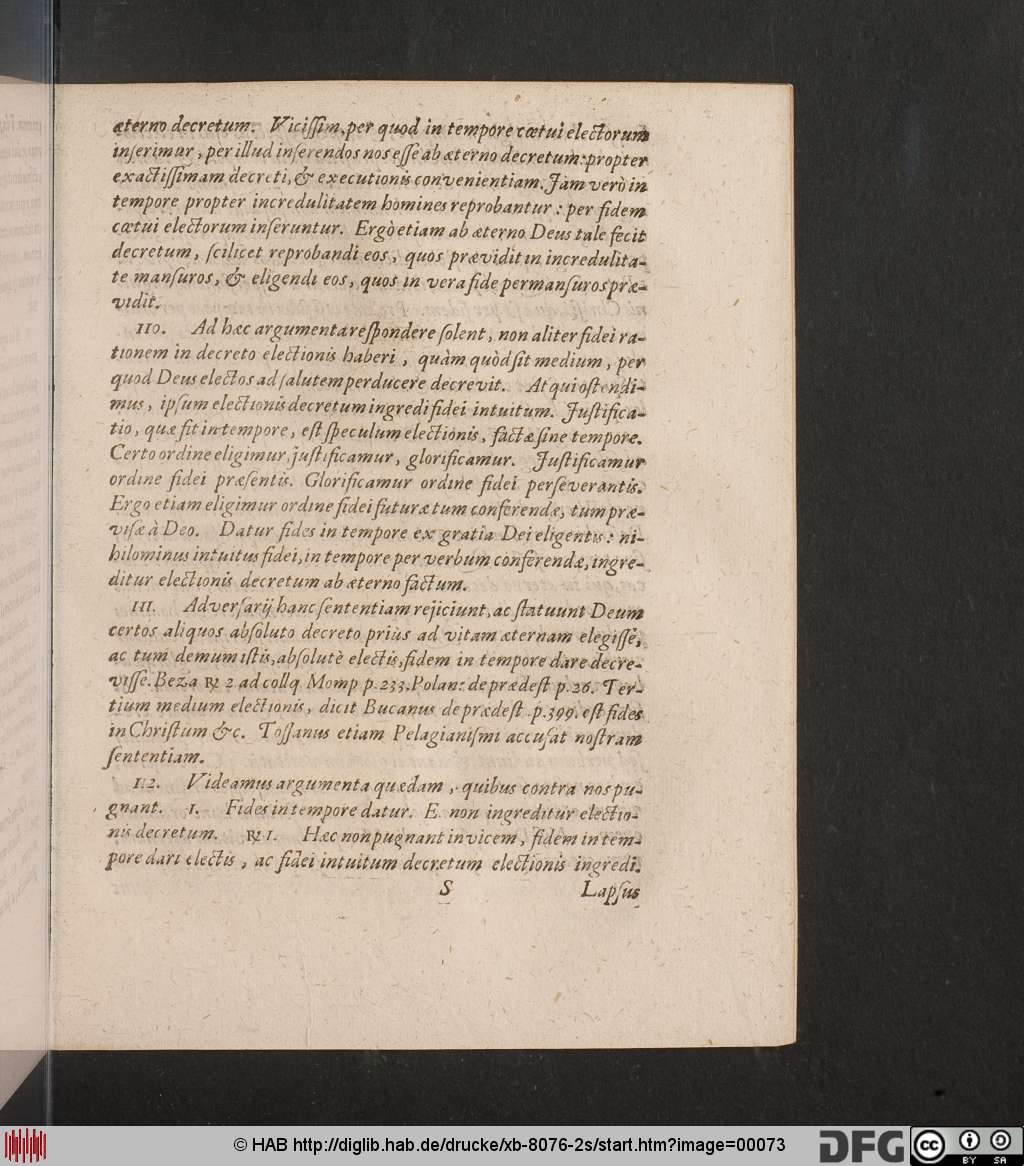 æterno decretum. Viciſſim, per quod in tempore cœtui electorum
inſerimur, per illud inſerendos nos eſſe ab æterno decretum: propter
exactiſſimam decreti, & executionis convenientiam. Jam verò in
tempore propter incredulitatem homines reprobantur: per fidem
cœtui electorum inſeruntur. Ergò etiam ab æterno Deus tale fecit
decretum, ſcilicet reprobandi eos, quos prævidit in incredulita-
te manſuros, & eligendi eos, quos in vera fide permanſuros præ-
vidit.
110. Ad hæc argumenta reſpondere ſolent, non aliter fidei ra-
tionem in decreto electionis haberi, quàm quòd ſit medium, per
quod Deus electos ad ſalutem perducere decrevit. Atqui oſtendi-
mus, ipſum electionis decretum ingredi fidei intuitum. Juſtifica-
tio, quæ fit in tempore, eſt ſpeculum electionis, factæ ſine tempore.
Certo ordine eligimur, juſtificamur, glorificamur. Juſtificamur
ordine fidei præſentis. Glorificamur ordine fidei perſeverantis.
Ergo etiam eligimur ordine fidei futuræ tum conferendæ, tum præ-
viſæ à Deo. Datur fides in tempore ex gratia Dei eligentis: ni-
hilominus intuitus fidei, in tempore per verbum conferendæ, ingre-
ditur electionis decretum ab æterno factum.
111. Adverſarij hanc ſententiam rejiciunt, ac ſtatuunt Deum
certos aliquos abſoluto decreto priùs ad vitam æternam elegiſſe,
ac tum demum iſtis, abſolutè electis, fidem in tempore dare decre-
viſſe. Beza ℞ 2 ad collq Momp p. 233. Polan: de prædeſt p. 26. Ter-
tium medium electionis, dicit Bucanus de prædeſt p. 399. eſt fides
in Chriſtum &c. Toſſanus etiam Pelagianiſmi accuſat noſtram
ſententiam.
112. Videamus argumenta quædam, quibus contra nos pu-
gnant. 1. Fides in tempore datur. E. non ingreditur electio-
nis decretum. ℞ 1. Hæc non pugnant invicem, fidem in tem-
pore dari electis, ac fidei intuitum decretum electionis ingredi.
S Lapſus
© HAB http://diglib.hab.de/drucke/xb-8076-2s/start.htm?image=00073
DFG
cc BY SA